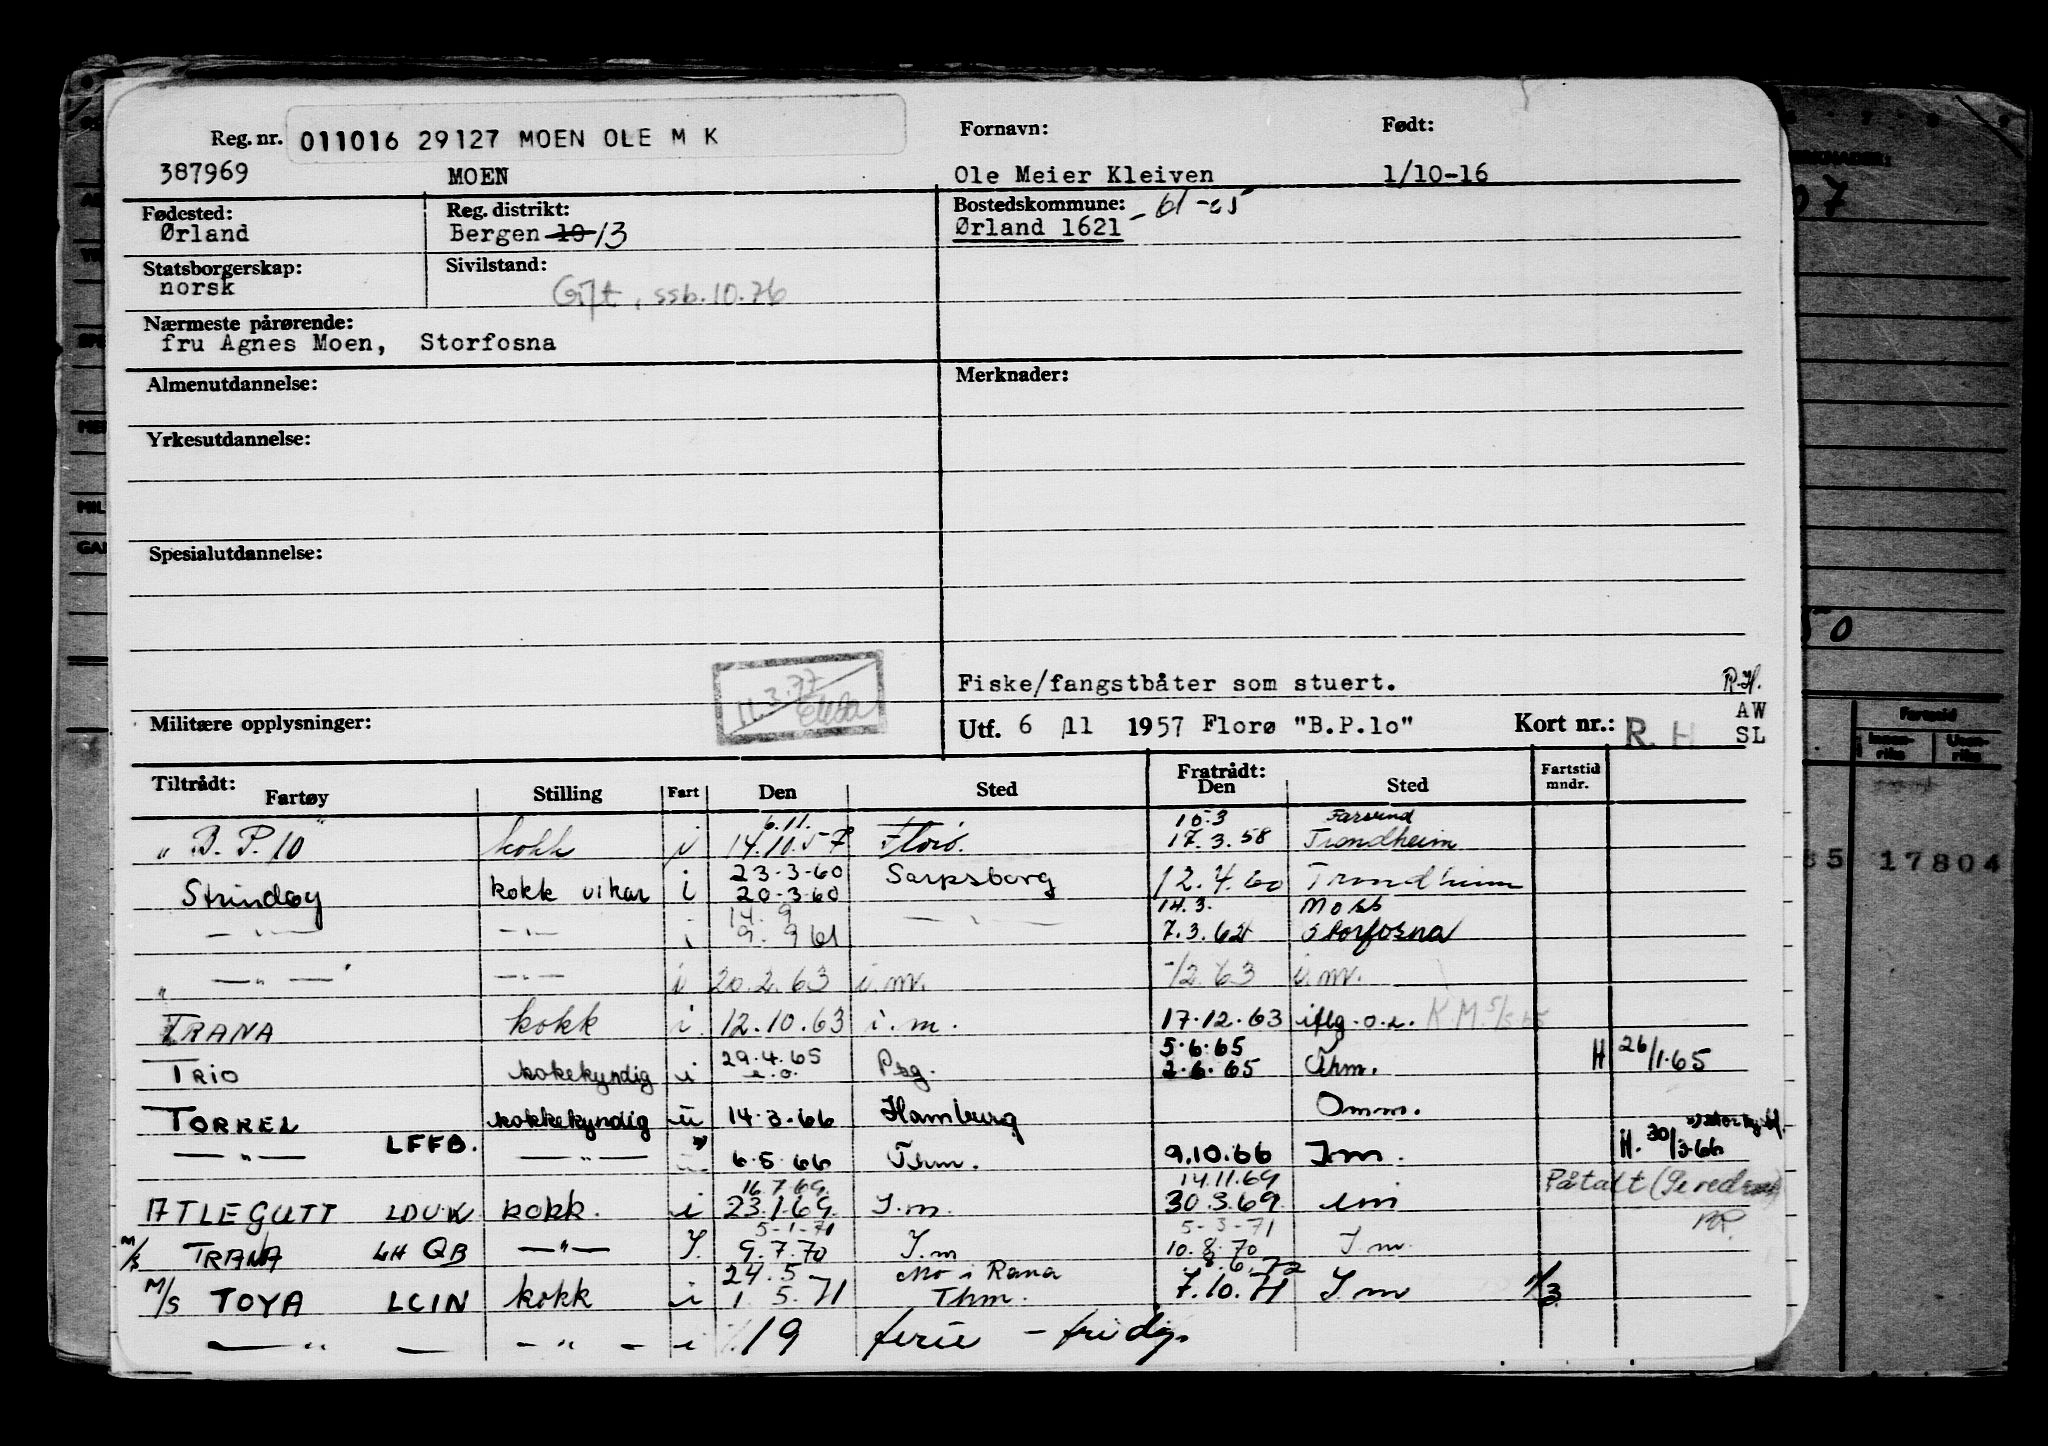 Reg. nr. 011016 29127 MOEN OLE M K Fornavn: Født:
387969 MOEN Ole Meier Kleiven 1/10-16
Fødested: Reg. distrikt: Bostedskommune:
Ørland Bergen 10 13 Ørland 1621
Statsborgerskap: Sivilstand:
norsk Gift, ssb. 10.76
Nærmeste pårørende:
fru Agnes Moen, Storfosna
Almenutdannelse: Merknader:
Yrkesutdannelse:
Spesialutdannelse:
11.3.77
Fiske/fangstbåter som stuert. R.H.
AW
Militære opplysninger: Utf. 6/11 1957 Florø "B.P.lo" Kort nr.: R. H SL
Tiltrådt: Fratrådt: Fartstid
Fartøy Stilling Fart Den Sted Den Sted mndr.
6.11. 10.3 Farsund
" B. P. 10 " kokk i 14.10.57 Florø. 17.3.58 Trondheim
23.3.60
Strindøy kokk vikar i 20.3.60 Sarpsborg 12.4.60 Trondheim
14.9 14.3. Moss
— " — — " — i 9.9 61 — " — 7.3.62 Storfosna
" — " — — " — i 20.2.63 i.m. -/2 63 i.m.
TRANA kokk i. 12.10.63 i.m. 17.12.63 iflg. o.s. K.M.
29.4.65 5.6.65
TRIO kokekyndig i Psg. 2.6.65 Thm. H 26/1.65
TORKEL kokkekyndig u 14.3.66 Hamburg Omm.
— " — LFFB. — " — 6.5.66 Thm. 9.10.66 I m. H. 30/3.66
16.7.69 14.11.69 Påtalt
ATLEGUTT LDUK kokk. i 23.1.69. I.m. 30.3.69. im
5-1-71 5-3-71
M/S TRANA LHQB — " — I. 9.7.70 I.m 10.8.70 I m.
24.5 Mo i Rana 8.6.72
M/S TOYA LCIN kokk i 1.5.71 Thm. 7.10.71 I m
— " — — " — i 19 ferie - fridg.
07
50
Fartstid
Innen-
riks
Uten-
riks
35 17804